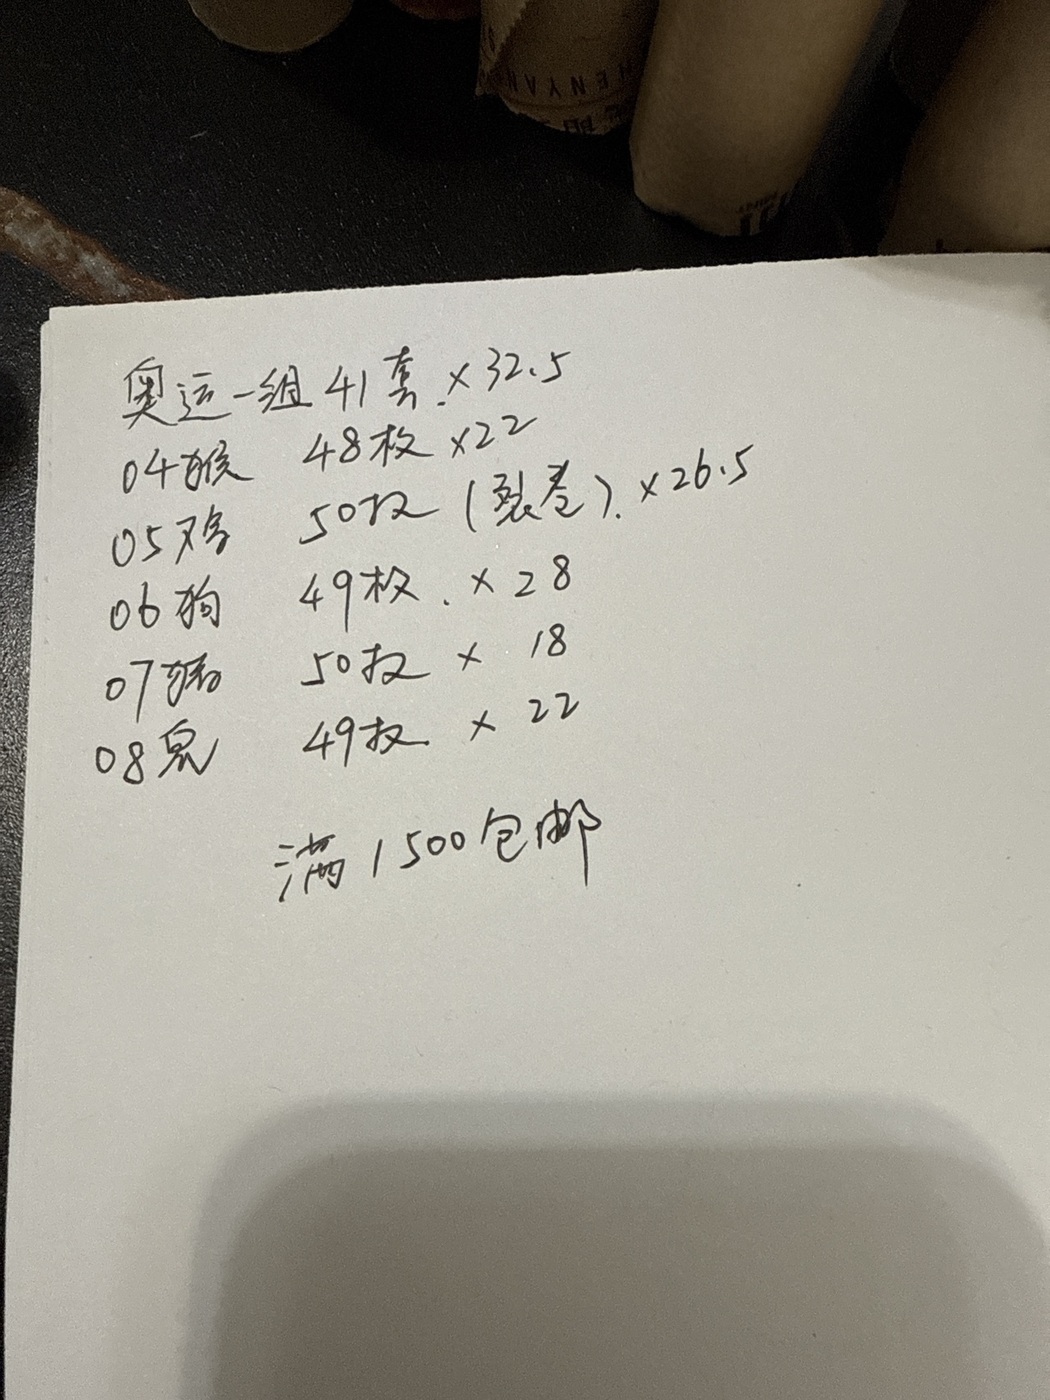 HENYAN
奥运一组 41套.×32.5
04猴 48枚×22
05鸡 50枚(裂卷).×26.5
06狗 49枚.×28
07猪 50枚× 18
08鼠 49枚× 22
满1500包邮